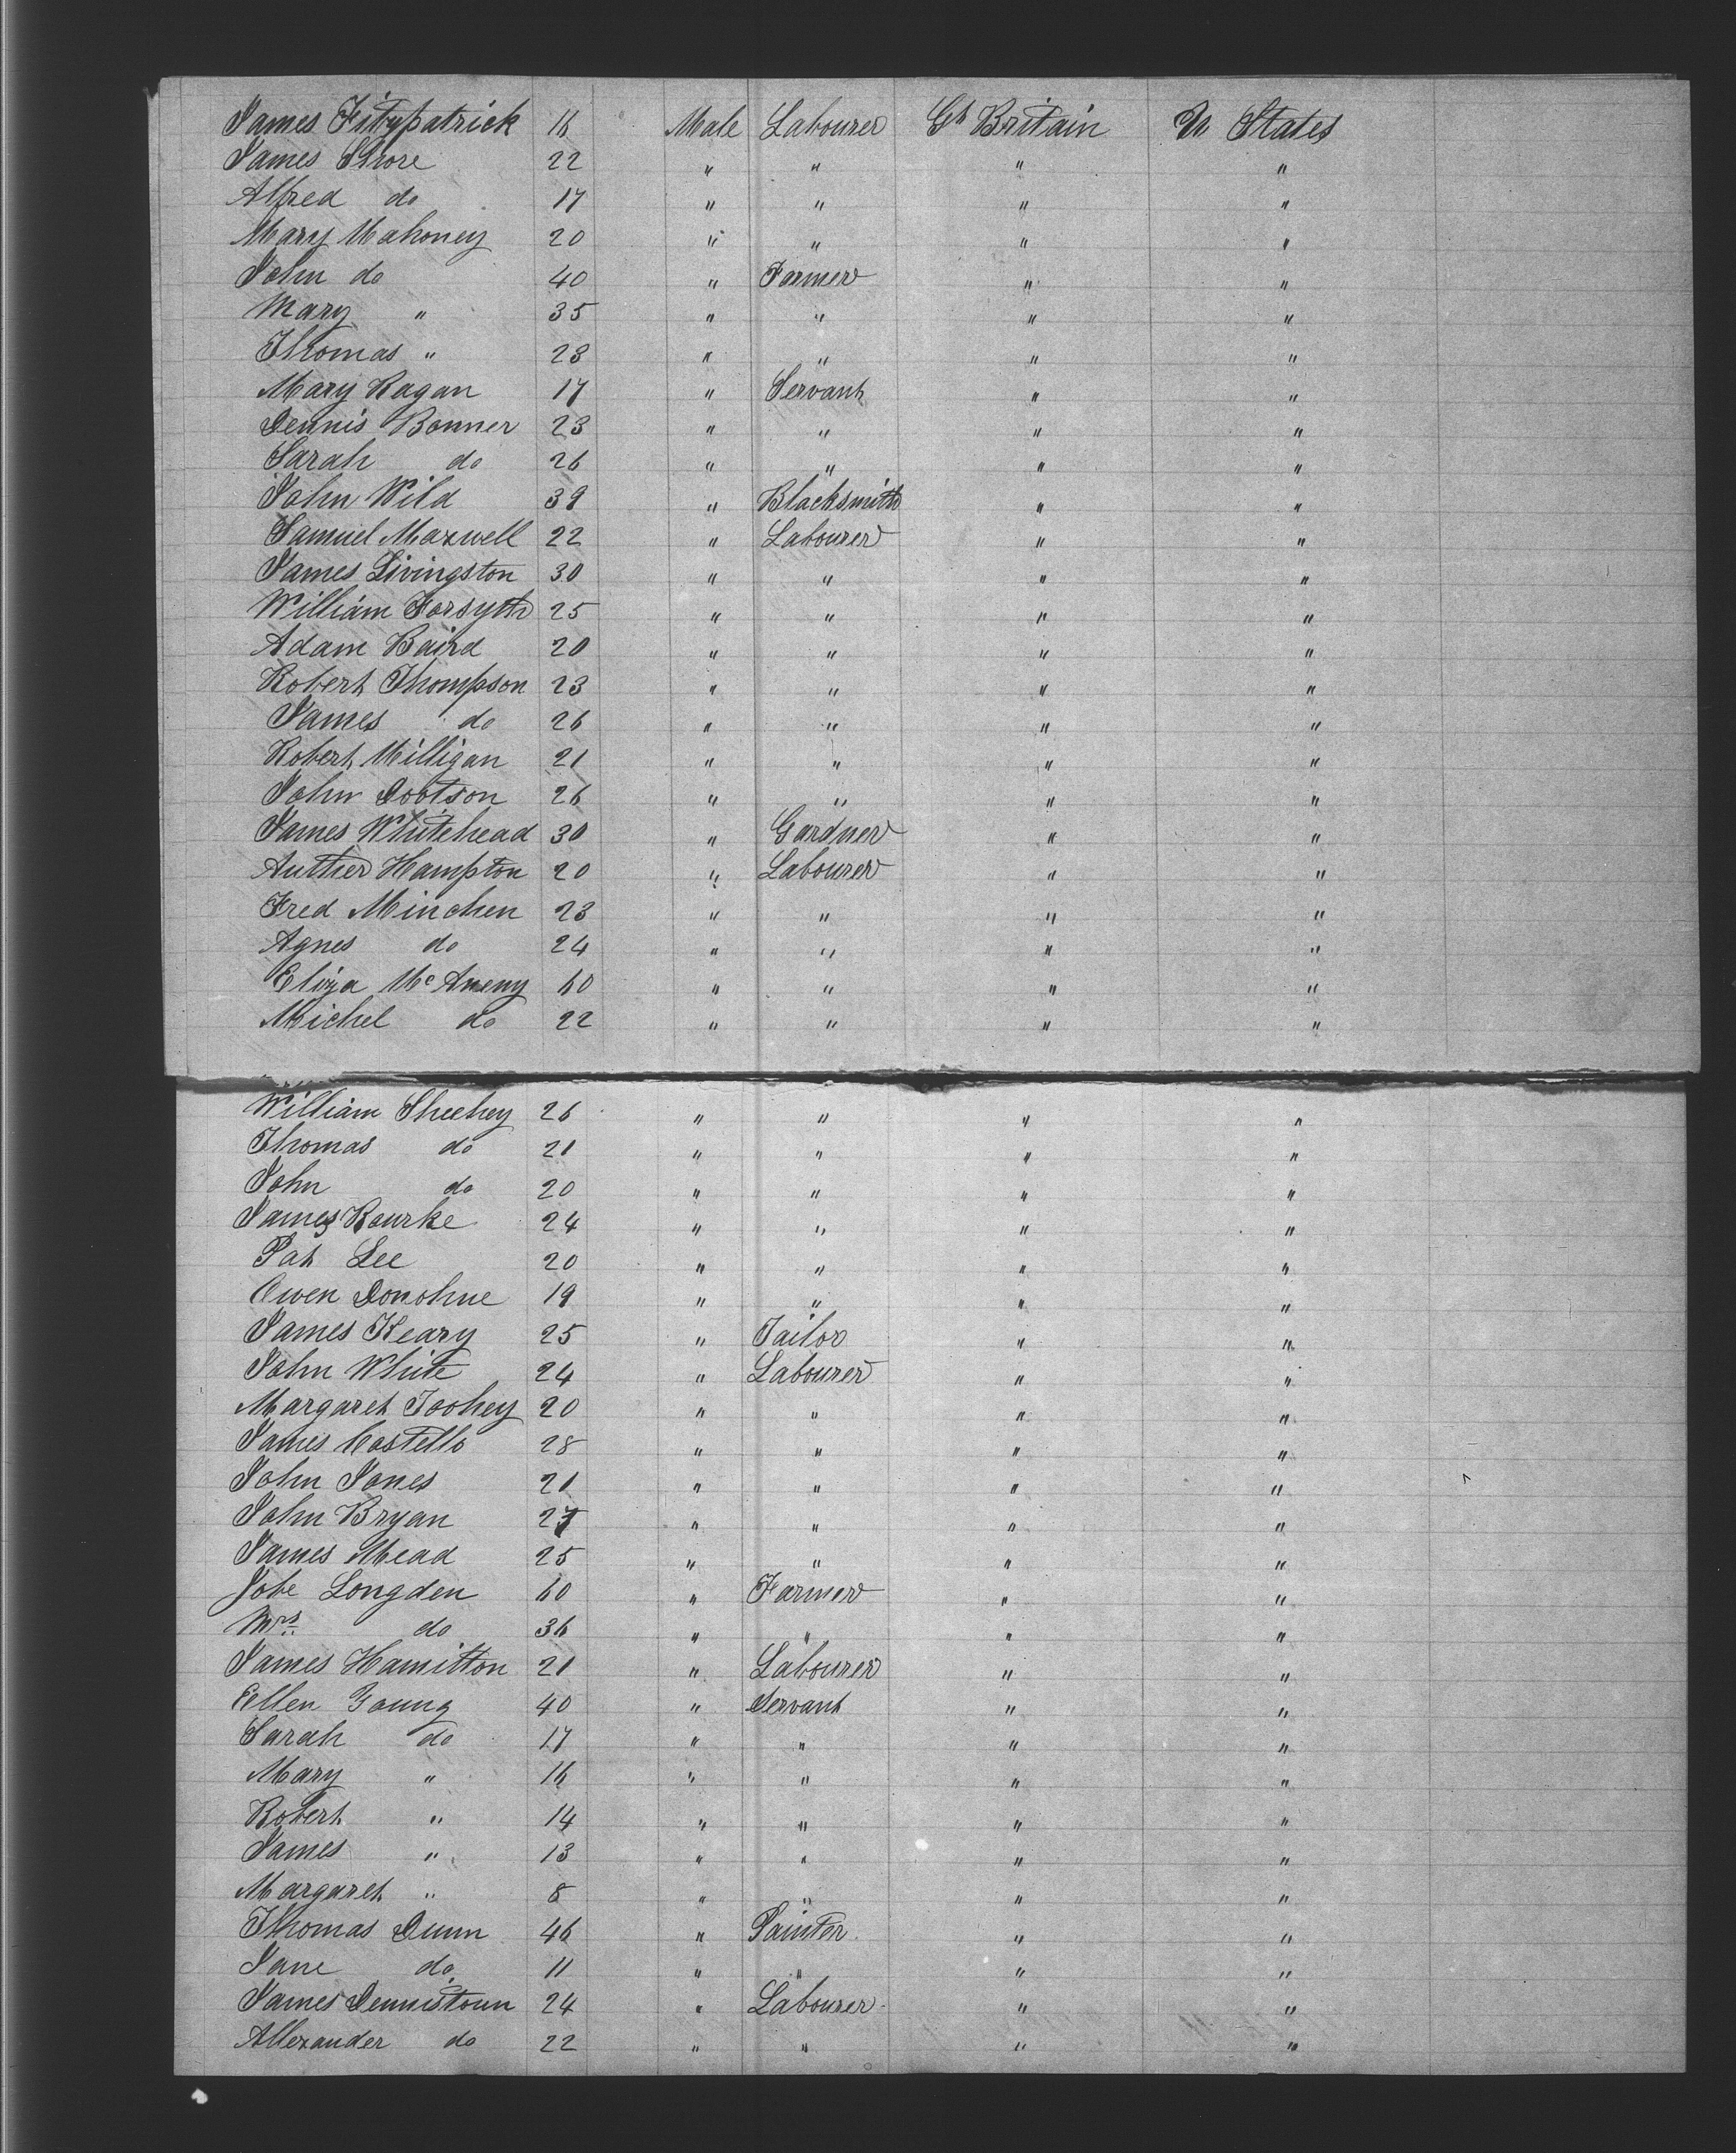 James Fitzpatrick 16 Male Labourer Gt Britain U States
James Shore 22 " " " "
Alfred do 17 " " " "
Mary Mahoney 20 " " " "
John do 40 " Farmer " "
Mary " 35 " " " "
Thomas " 23 " " " "
Mary Ragan 17 " Servant " "
Dennis Bonner 23 " " " "
Sarah do 26 " " " "
John Wild 39 " Blacksmith " "
Samuel Maxwell 22 " Labourer " "
James Livingston 30 " " " "
William Forsyth 25 " " " "
Adam Baird 20 " " " "
Robert Thompson 23 " " " "
James do 26 " " " "
Robert Milligan 21 " " " "
John Dootson 26 " " " "
James Whitehead 30 " Gardner " "
Auther Hampton 20 " Labourer " "
Fred Minchen 23 " " " "
Agnes do 24 " " " "
Eliza McAneny 60 " " " "
Michel do 22 " " " "
William Sheehey 26 " " " "
Thomas do 21 " " " "
John do 20 " " " "
James Rourke 24 " " " "
Pat Lee 20 " " " "
Owen Donohue 19 " " " "
James Keary 25 " Tailor " "
John White 24 " Labourer " "
Margaret Toohey 20 " " " "
James Costello 28 " " " "
John Jones 21 " " " "
John Bryan 27 " " " "
James Mead 25 " " " "
Jobe Longden 60 " Farmer " "
Mrs do 36 " " " "
James Hamilton 21 " Labourer " "
Ellen Young 40 " Servant " "
Sarah do 17 " " " "
Mary " 16 " " " "
Robert " 14 " " " "
James " 13 " " " "
Margaret " 8 " " " "
Thomas Dunn 46 " Painter " "
Jane do 11 " " " "
James Dennistoun 24 " Labourer " "
Allexander do 22 " " " "